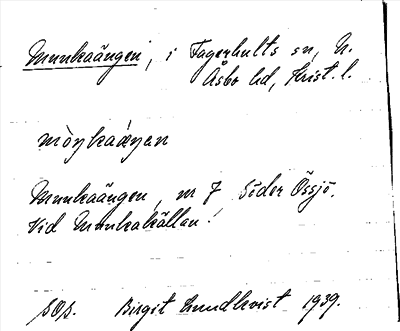 Munkaängen, i Fagerhults sn, N.
Åsbo hd, Krist. l.
mòŋkaáŋən
Munkaängen, m 7 Söder Össjö.
Vid Munkakällan!
SOS. Birgit Lundkvist 1939.